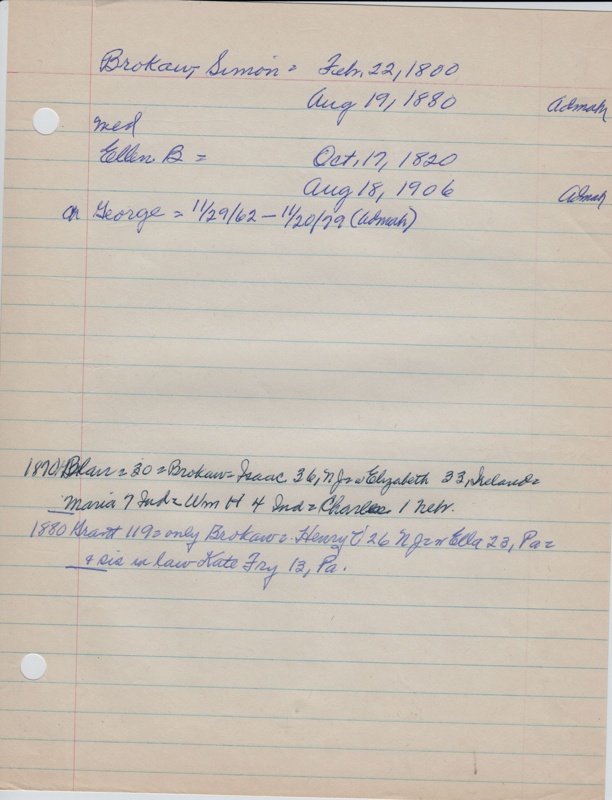 Brokaw, Simon = Feb. 22, 1800
Aug 19, 1880 Admah
med
Ellen B = Oct. 17, 1820
Aug 18, 1906 Admah
ch George = 11/29/62 - 11/20/79 (Admah)
1870 Blair = 30 = Brokaw = Isaac 36, NJ = w Elizabeth 33, Ireland =
Maria 7 Ind = Wm H 4 Ind = Charles 1 Nebr.
1880 Grant 119 = only Brokaw = Henry V 26 NJ = w Ella 23, Pa =
+ sis in law Kate Fry 13, Pa.